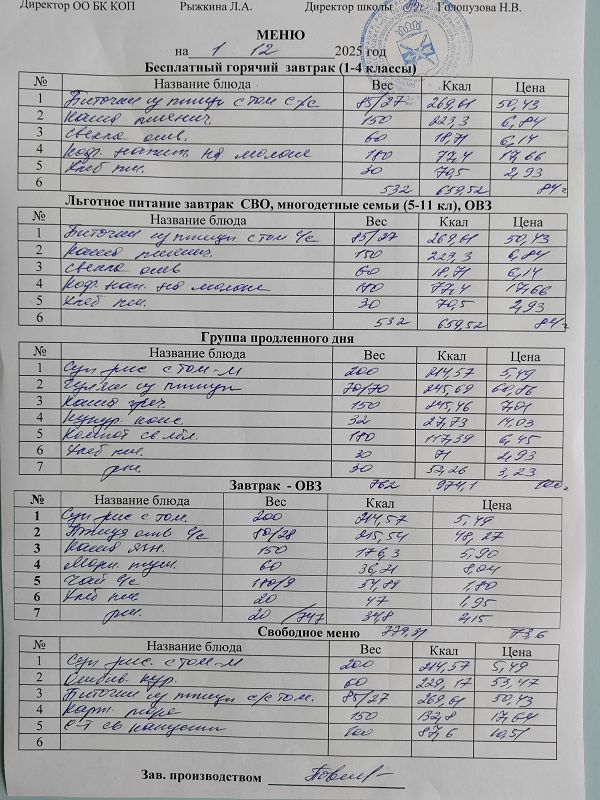 Директор ОО БК КОП Рыжкина Л.А. Директор школы Голопузова Н.В.
МЕНЮ
на 1 12 2025 год
Бесплатный горячий завтрак (1-4 классы)
№ Название блюда Вес Ккал Цена
1 Биточки из птицы с том с/с 85/27 269,61 50,43
2 Каша пшенич. 150 223,3 6,84
3 Свекла отв. 60 18,71 6,14
4 Коф. напит. на молоке 180 77,4 17,66
5 Хлеб пш. 30 70,5 2,93
6 532 659,52 84=
Льготное питание завтрак СВО, многодетные семьи (5-11 кл), ОВЗ
№ Название блюда Вес Ккал Цена
1 Биточки из птицы с том с/с 85/27 269,61 50,43
2 Каша пшенич. 150 223,3 6,84
3 Свекла отв 60 18,71 6,14
4 Коф. нап. на молоке 180 77,4 17,66
5 Хлеб пш. 30 70,5 2,93
6 532 659,52 84=
Группа продленного дня
№ Название блюда Вес Ккал Цена
1 Суп рис с том-м 200 214,57 5,49
2 Гуляш из птицы 70/70 245,69 60,86
3 Каша греч. 150 245,46 7,01
4 Кукур конс. 32 27,73 14,03
5 Компот св. ябл. 180 117,39 6,45
6 Хлеб пш. 30 71 2,93
7 рж. 30 52,26 3,23
Завтрак - ОВЗ 762 974,1 100=
№ Название блюда Вес Ккал Цена
1 Суп рис с том. 200 214,57 5,49
2 Птица отв с/с 80/28 215,54 48,27
3 Каша ячн. 150 176,3 5,90
4 Морк. туш. 60 36,21 8,04
5 Чай с/с 180/9 54,89 1,80
6 Хлеб пш. 20 47 1,95
7 рж. 20 /747 34,8 2,15
Свободное меню 779,31 73,6
№ Название блюда Вес Ккал Цена
1 Суп рис. с том-м 200 214,57 5,49
2 кур. 60 229,17 53,47
3 Биточки из птицы с/с том. 85/27 269,61 50,43
4 Карт. пюре 150 132,8 17,64
5 С-т св капусты 100 87,6 10,51
6
Зав. производством